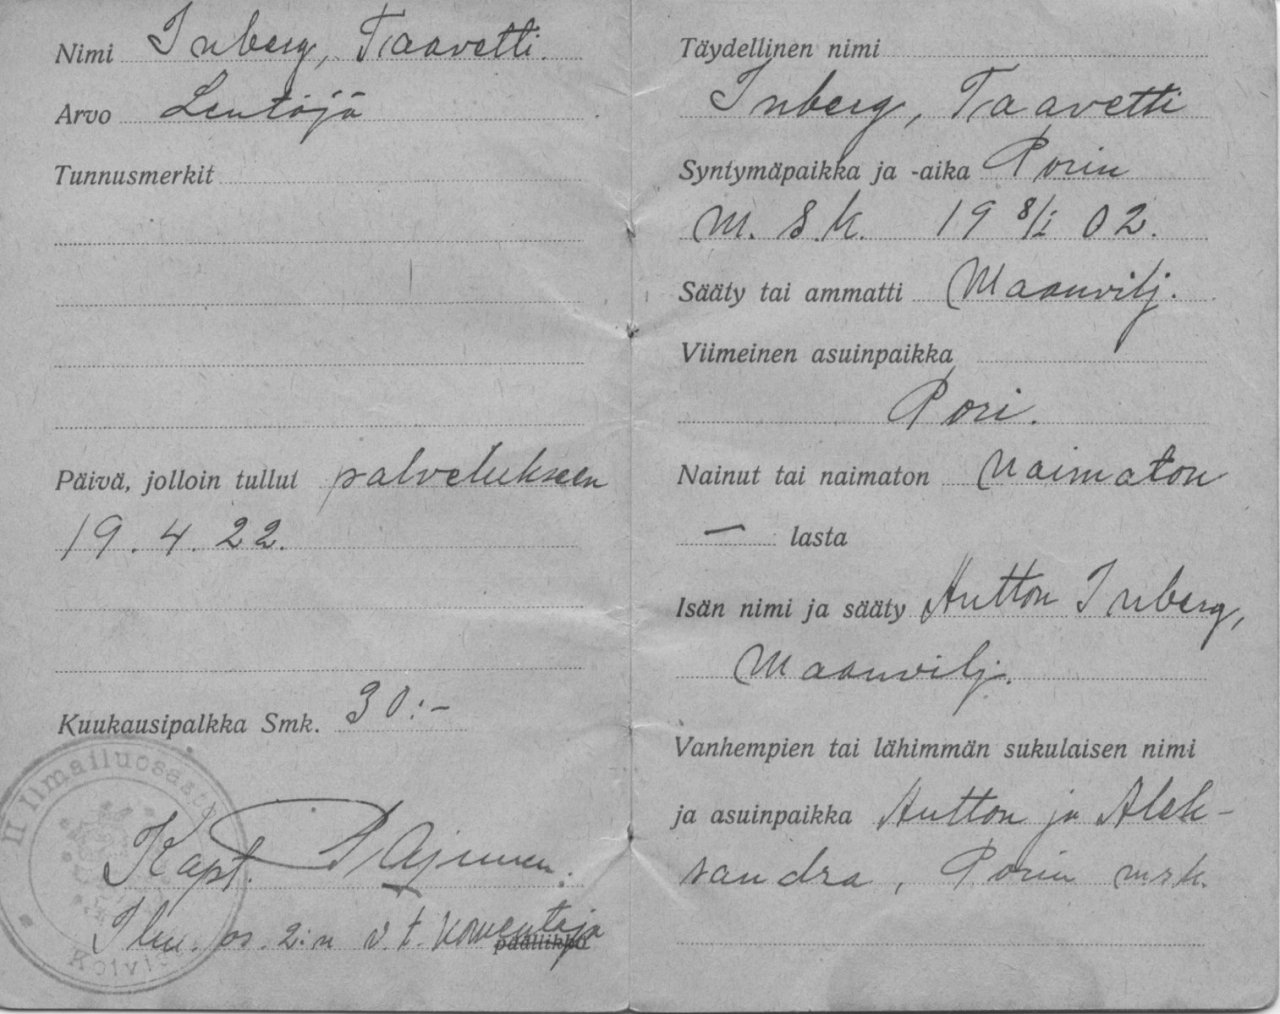 Nimi Inberg, Taavetti.
Arvo Lentäjä
Tunnusmerkit
Päivä, jolloin tullut palvelukseen
19.4.22.
Kuukausipalkka Smk. 30:-
II Ilmailuosasto
Kapt.
Ilm. os. 2:n v. t. komentaja
päällikkö
Koivisto
Täydellinen nimi
Inberg, Taavetti
Syntymäpaikka ja -aika Porin
m. s.k. 19 8/I 02.
Sääty tai ammatti Maanvilj.
Viimeinen asuinpaikka
Pori.
Nainut tai naimaton Naimaton
— lasta
Isän nimi ja sääty Antton Inberg,
Maanvilj.
Vanhempien tai lähimmän sukulaisen nimi
ja asuinpaikka Antton ja Alek-
sandra, Porin msk.